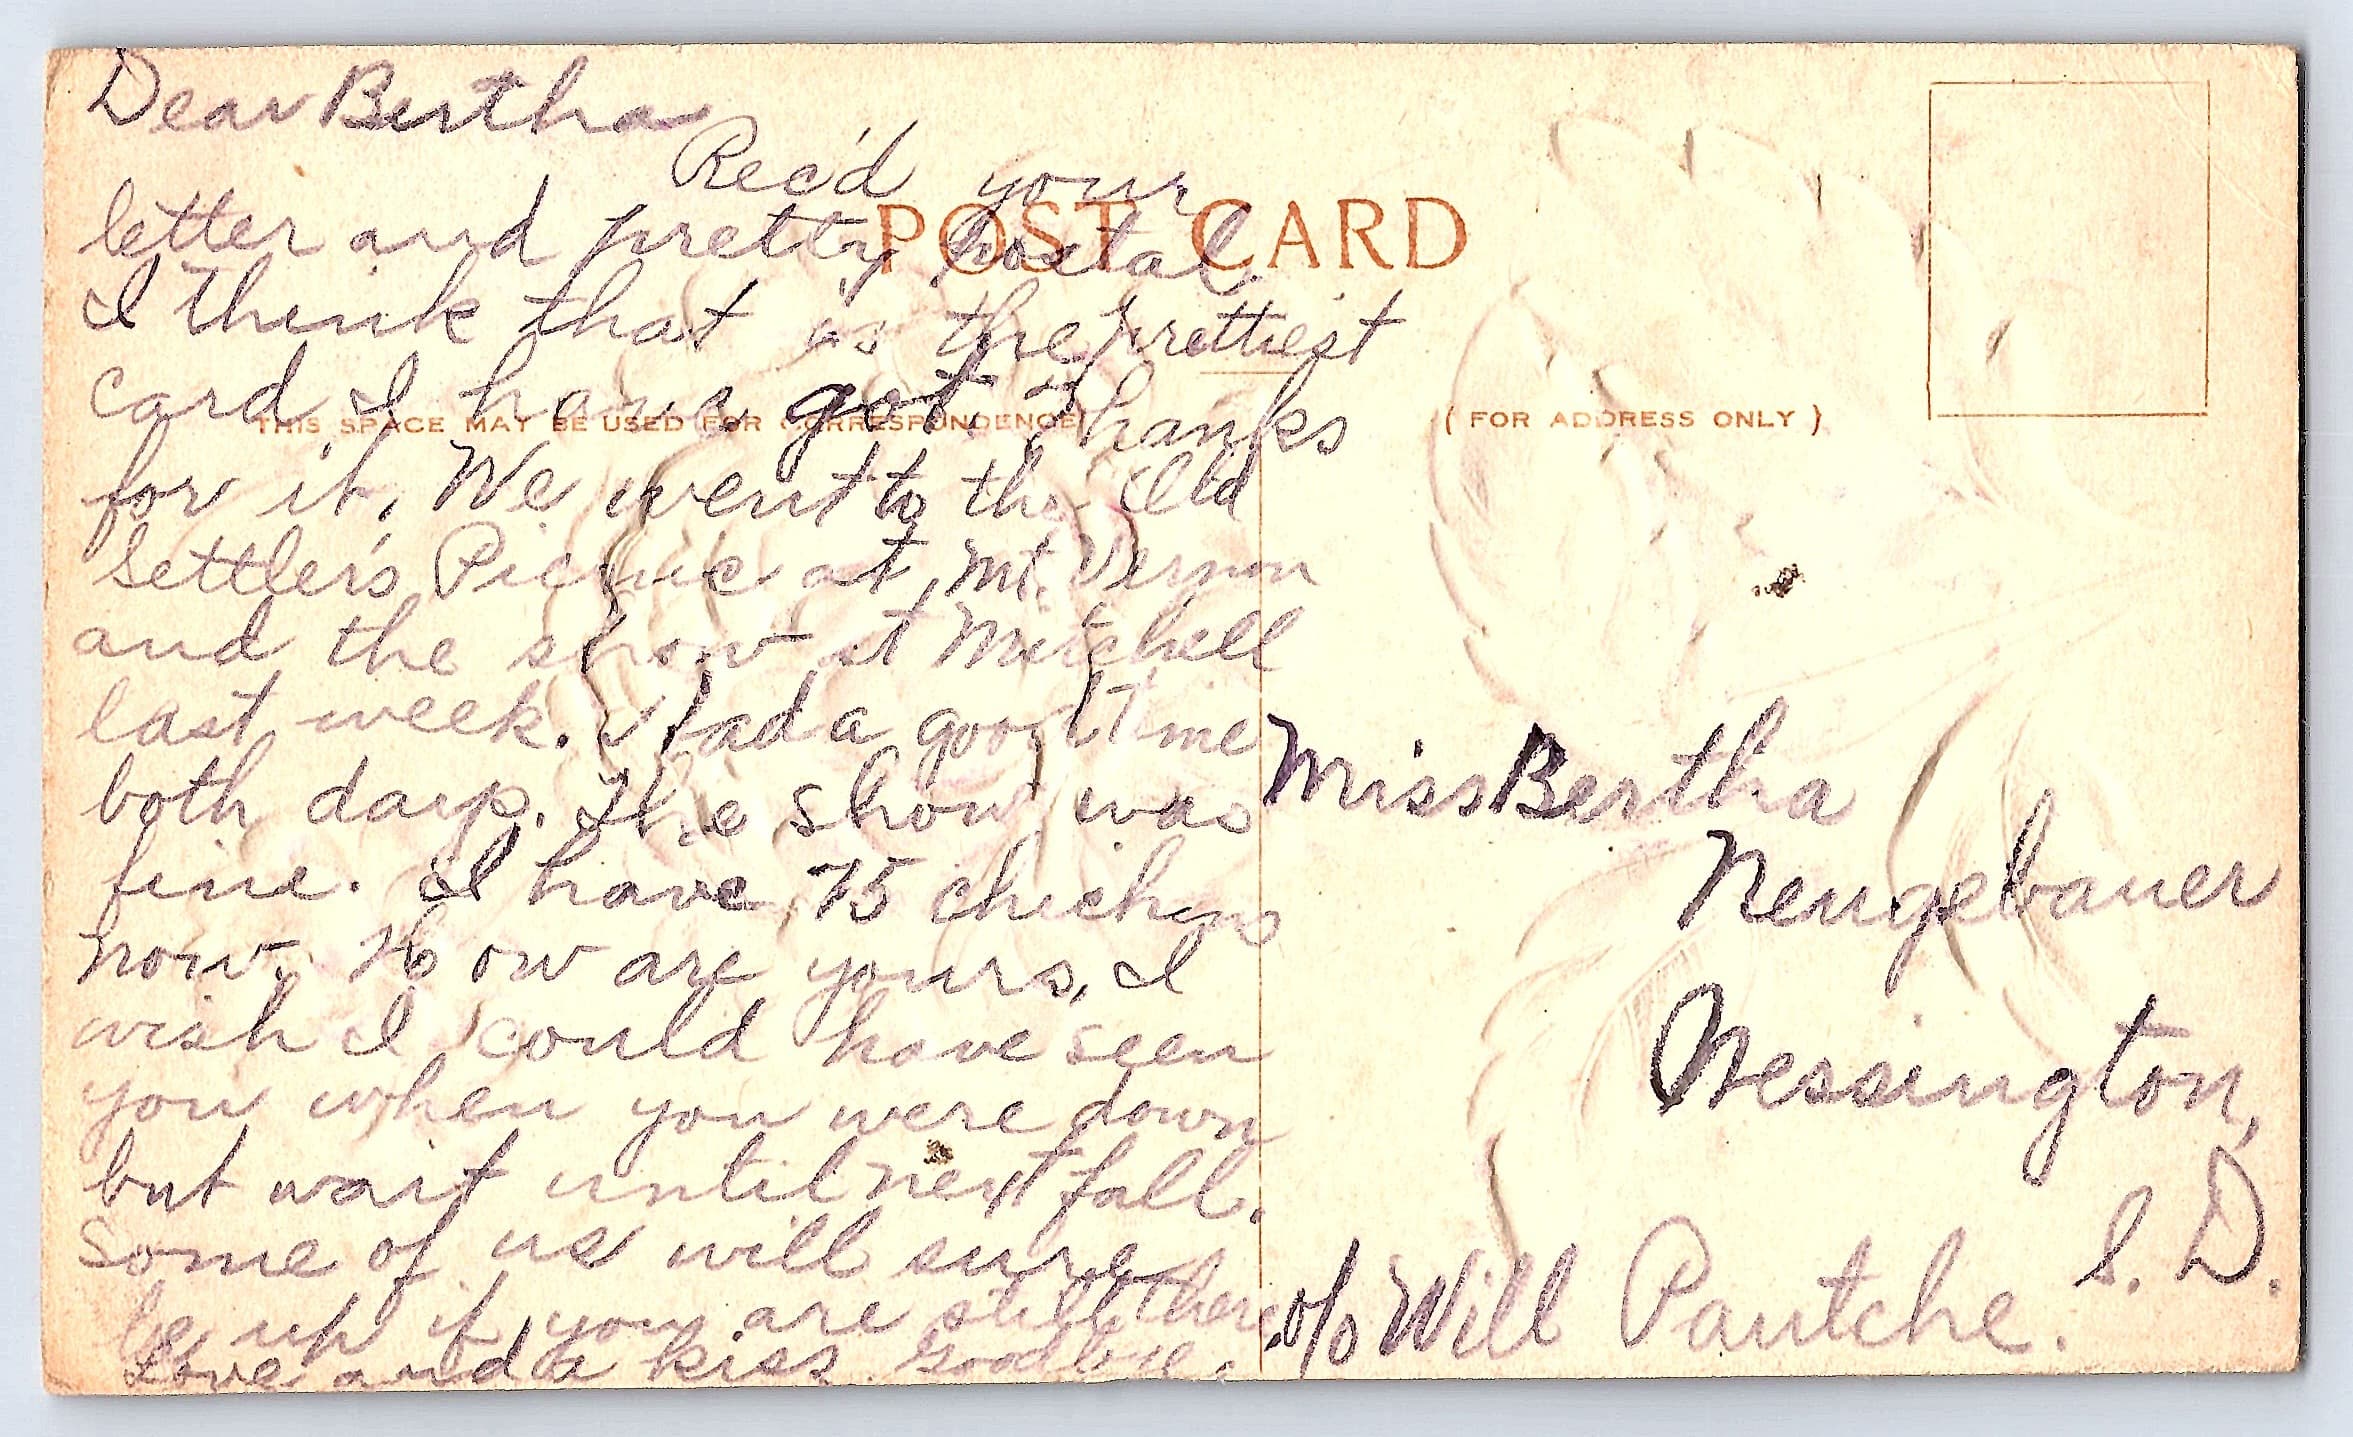 Dear Bertha
Rec'd your
letter and pretty postal.
I think that is the prettiest
card I have got. Thanks
for it. We went to the Old
Settler's Picnic at Mt. Vernon
and the show at Mitchell
last week. Had a good time
both days. The show was
fine. I have 75 chickens
now. How are yours, I
wish I could have seen
you when you were down
but wait until next fall.
Some of us will sure
be up if you are still there.
Love and a kiss. Goodbye.
POST CARD
THIS SPACE MAY BE USED FOR CORRESPONDENCE
( FOR ADDRESS ONLY )
Miss Bertha
Neugebauer
Wessington,
S. D.
c/o Will Pautche.